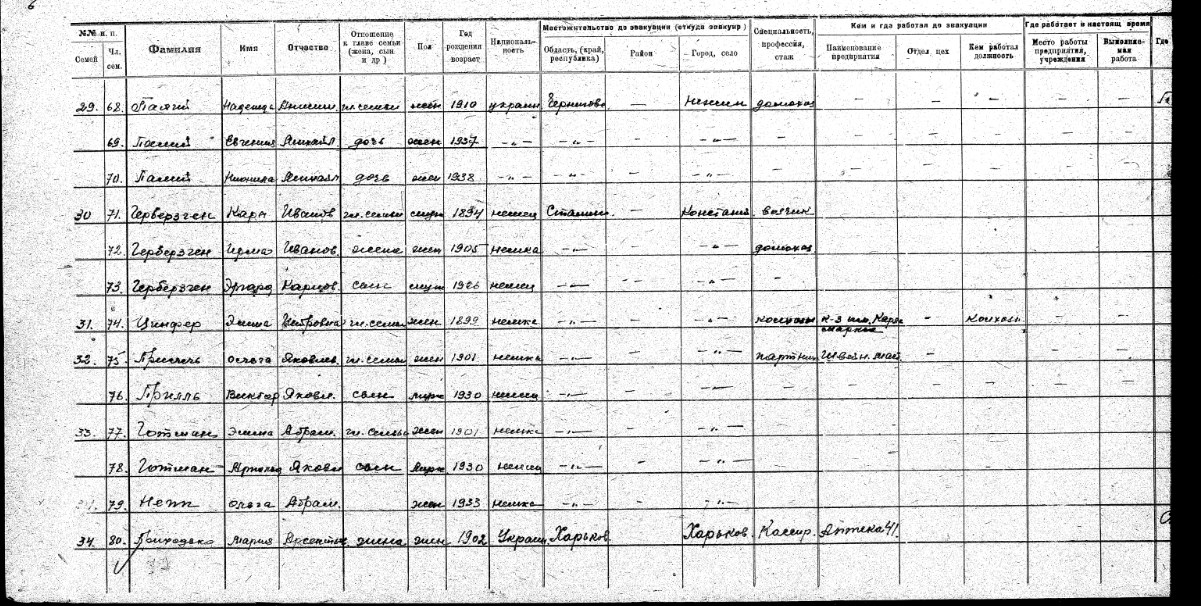 6
№№ п. п. Фамилия Имя Отчество Отношение к главе семьи (жена, сын и др) Пол Год рождения возраст Националь-ность Местожительство до эвакуации (откуда эвакуир) Специальность, профессия, стаж Кем и где работал до эвакуации Где работает в настоящ время
Семей Чл. сем. Область, (край, республика) Район Город, село Наименование предприятия Отдел, цех Кем работал должность Место работы предприятия, учреждения Выполняе-мая работа Где
29. 68. Палий Надежда гл. семьи жен 1910 украин Чернигов — Нежин домохоз — — — — —
69. Палий Евгения Михайл дочь жен 1937 —„— —„— — —„— — — — — — —
70. Палий Михайл дочь жен 1938 —„— —„— — —„— — — — — — —
30 71. Герберзген Карл Иванов гл. семьи муж 1894 немец Сталин. — Констант
72. Герберзген Ирма Иванов. жена жен 1905 немка —„— — —„— домохоз
73. Герберзген Эргард Карлов. сын муж 1926 немец —„— — —„— —
31. 74. Цинфер Эмма Петровна гл. семьи жен 1899 немка —„— — —„— колхозн к-з им. Карл Маркса — колхозн
32. 75. Ольга Яковлев. гл. семьи жен 1901 немка —„— — —„— Швейн. маст —
76. Прилль Виктор Яковл. сын муж 1930 немец —„— — —„— — — — — — —
33. 77. Готман Эмма Абрам. гл. семьи жен 1901 немка —„— — —„—
78. Готман Арнольд Яковл сын муж 1930 немец —„— — —„—
79. Непп Ольга Абрам. жен 1933 немка —„— — —„—
34. 80. Приходько Мария Арсентьев жена жен 1902 Украин Харьков. Харьков. Кассир. Аптека 41.